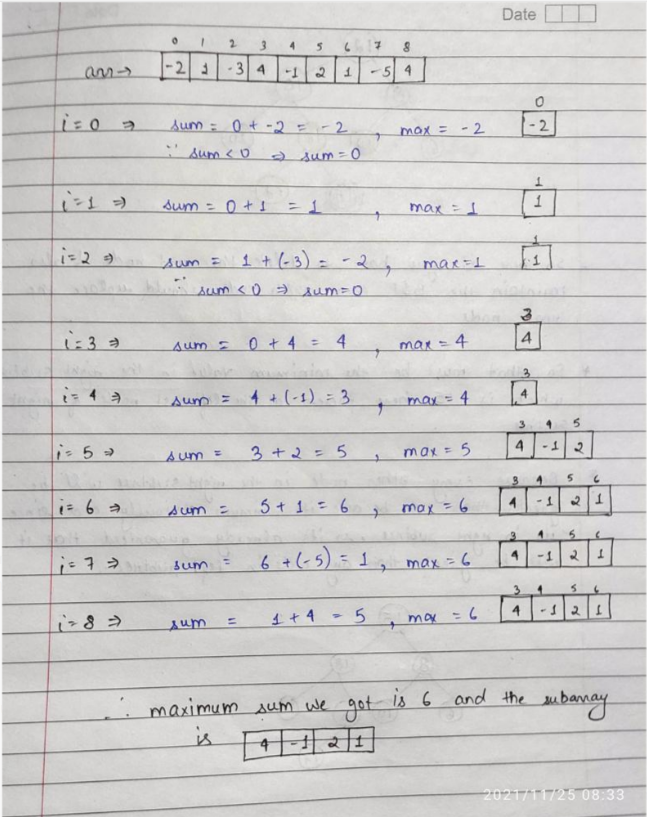 Date
0 1 2 3 4 5 6 7 8
arr→ -2 1 -3 4 -1 2 1 -5 4
0
i=0 ⇒ sum = 0 + -2 = -2 , max = -2 -2
∵ sum<0 ⇒ sum=0
1
i=1 ⇒ sum = 0 + 1 = 1 , max = 1 1
1
i=2 ⇒ sum = 1 + (-3) = -2 , max=1 1
∵ sum<0 ⇒ sum=0
3
i=3 ⇒ sum = 0 + 4 = 4 , max = 4 4
3
i=4 ⇒ sum = 4 + (-1) = 3 , max = 4 4
3 4 5
i=5 ⇒ sum = 3 + 2 = 5 , max = 5 4 -1 2
3 4 5 6
i=6 ⇒ sum = 5 + 1 = 6 , max = 6 4 -1 2 1
3 4 5 6
i=7 ⇒ sum = 6 + (-5) = 1 , max = 6 4 -1 2 1
3 4 5 6
i=8 ⇒ sum = 1 + 4 = 5 , max = 6 4 -1 2 1
∴ maximum sum we got is 6 and the subarray
is 4 -1 2 1
2021/11/25 08:33